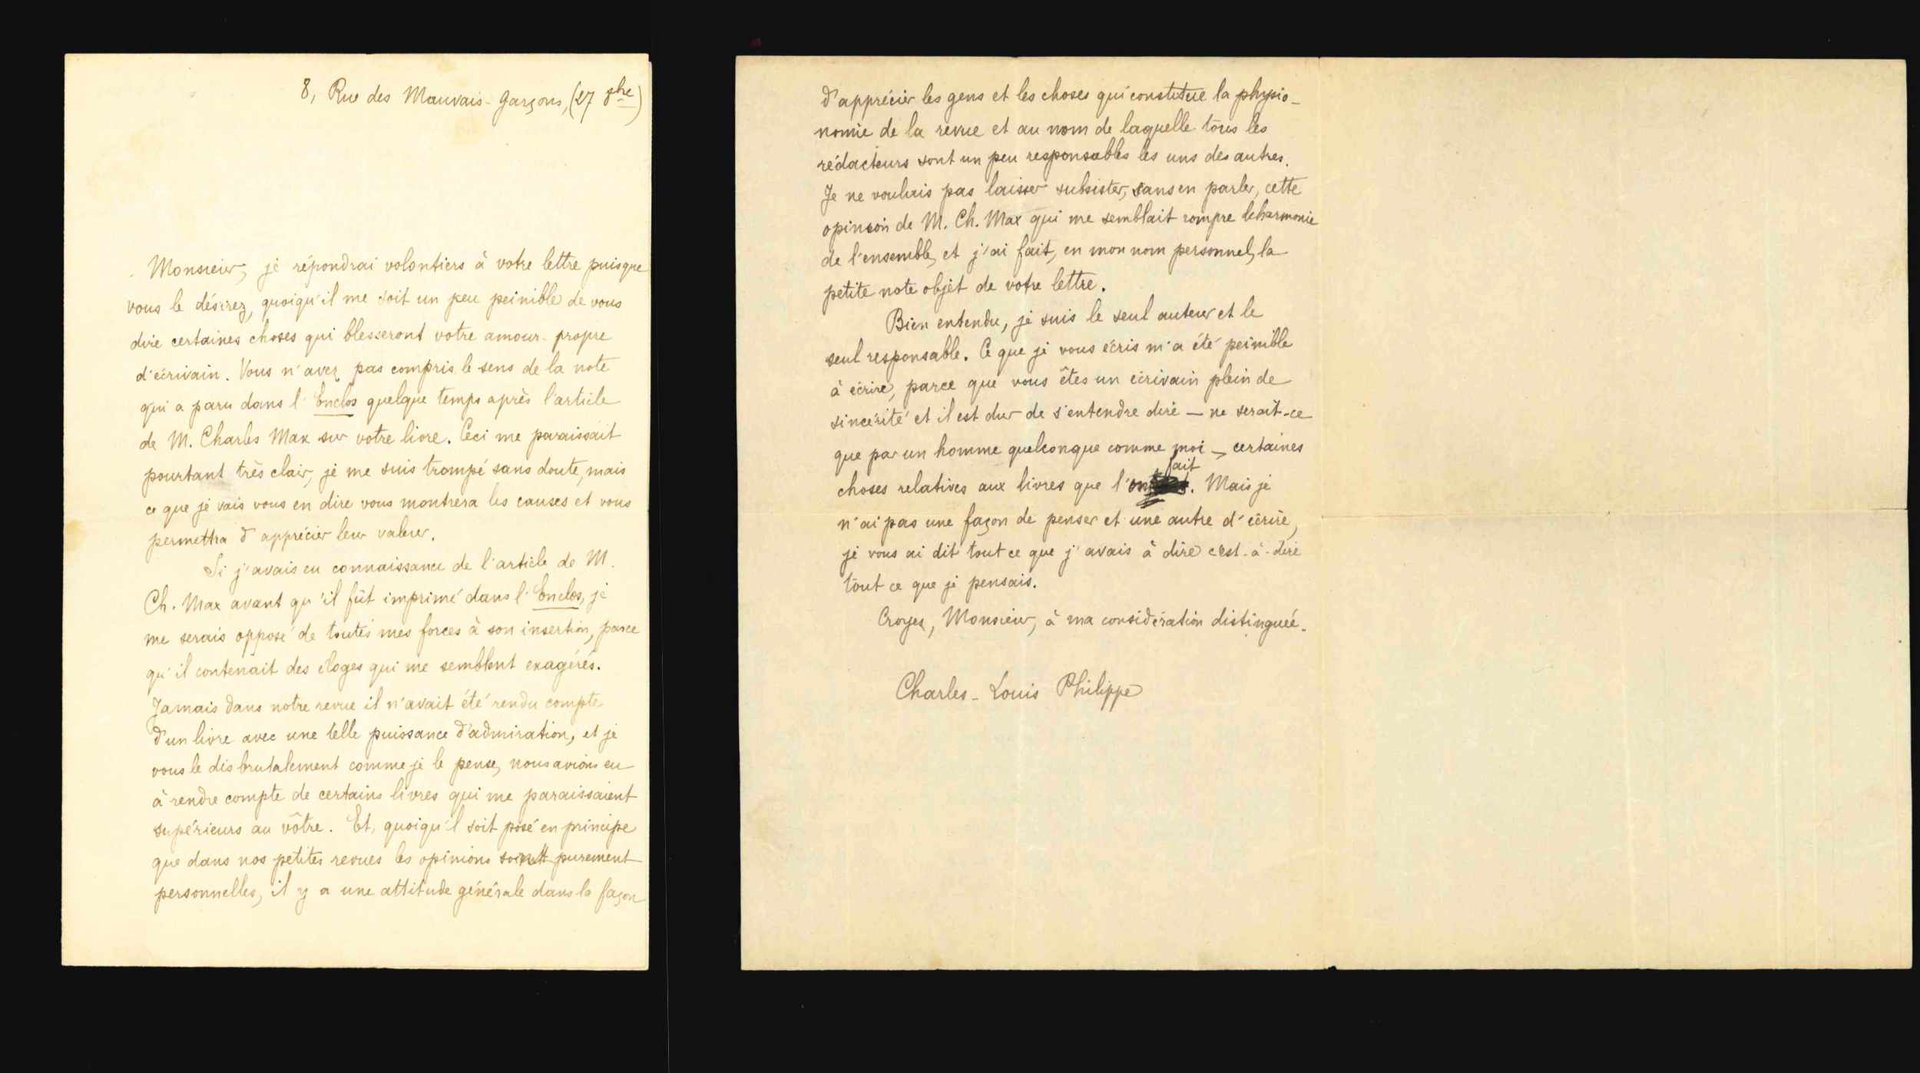 8, Rue des Mauvais-Garçons, (27 8bre)
Monsieur, je répondrai volontiers à votre lettre puisque
vous le désirez, quoiqu'il me soit un peu peinible de vous
dire certaines choses qui blesseront votre amour-propre
d'écrivain. Vous n'avez pas compris le sens de la note
qui a paru dans l'Enclos quelque temps après l'article
de M. Charles Max sur votre livre. Ceci me paraissait
pourtant très clair, je me suis trompé sans doute, mais
ce que je vais vous en dire vous montrera les causes et vous
permettra d'apprécier leur valeur.
Si j'avais eu connaissance de l'article de M.
Ch. Max avant qu'il fût imprimé dans l'Enclos, je
me serais opposé de toutes mes forces à son insertion, parce
qu'il contenait des éloges qui me semblent exagérés.
Jamais dans notre revue il n'avait été rendu compte
d'un livre avec une telle puissance d'admiration, et je
vous le dis brutalement comme je le pense, nous avions eu
à rendre compte de certains livres qui me paraissaient
supérieurs au vôtre. Et, quoiqu'il soit posé en principe
que dans nos petites revues les opinions soient purement
personnelles, il y a une attitude générale dans la façon
d'apprécier les gens et les choses qui constitue la physio-
nomie de la revue et au nom de laquelle tous les
rédacteurs sont un peu responsables les uns des autres.
Je ne voulais pas laisser subsister, sans en parler, cette
opinion de M. Ch. Max qui me semblait rompre l'harmonie
de l'ensemble, et j'ai fait, en mon nom personnel, la
petite note objet de votre lettre.
Bien entendu, je suis le seul auteur et le
seul responsable. Ce que je vous écris m'a été peinible
à écrire, parce que vous êtes un écrivain plein de
sincérité et il est dur de s'entendre dire — ne serait-ce
que par un homme quelconque comme moi — certaines
choses relatives aux livres que l'on fait. Mais je
n'ai pas une façon de penser et une autre d'écrire,
je vous ai dit tout ce que j'avais à dire c'est-à-dire
tout ce que je pensais.
Croyez, Monsieur, à ma considération distinguée.
Charles-Louis Philippe